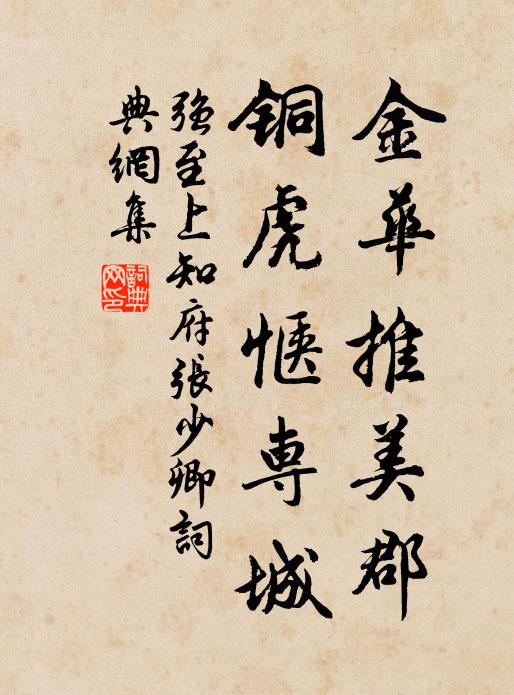 金華推美郡
銅虎愜専城
強至上知府張少卿詞
典網集
詞典網印